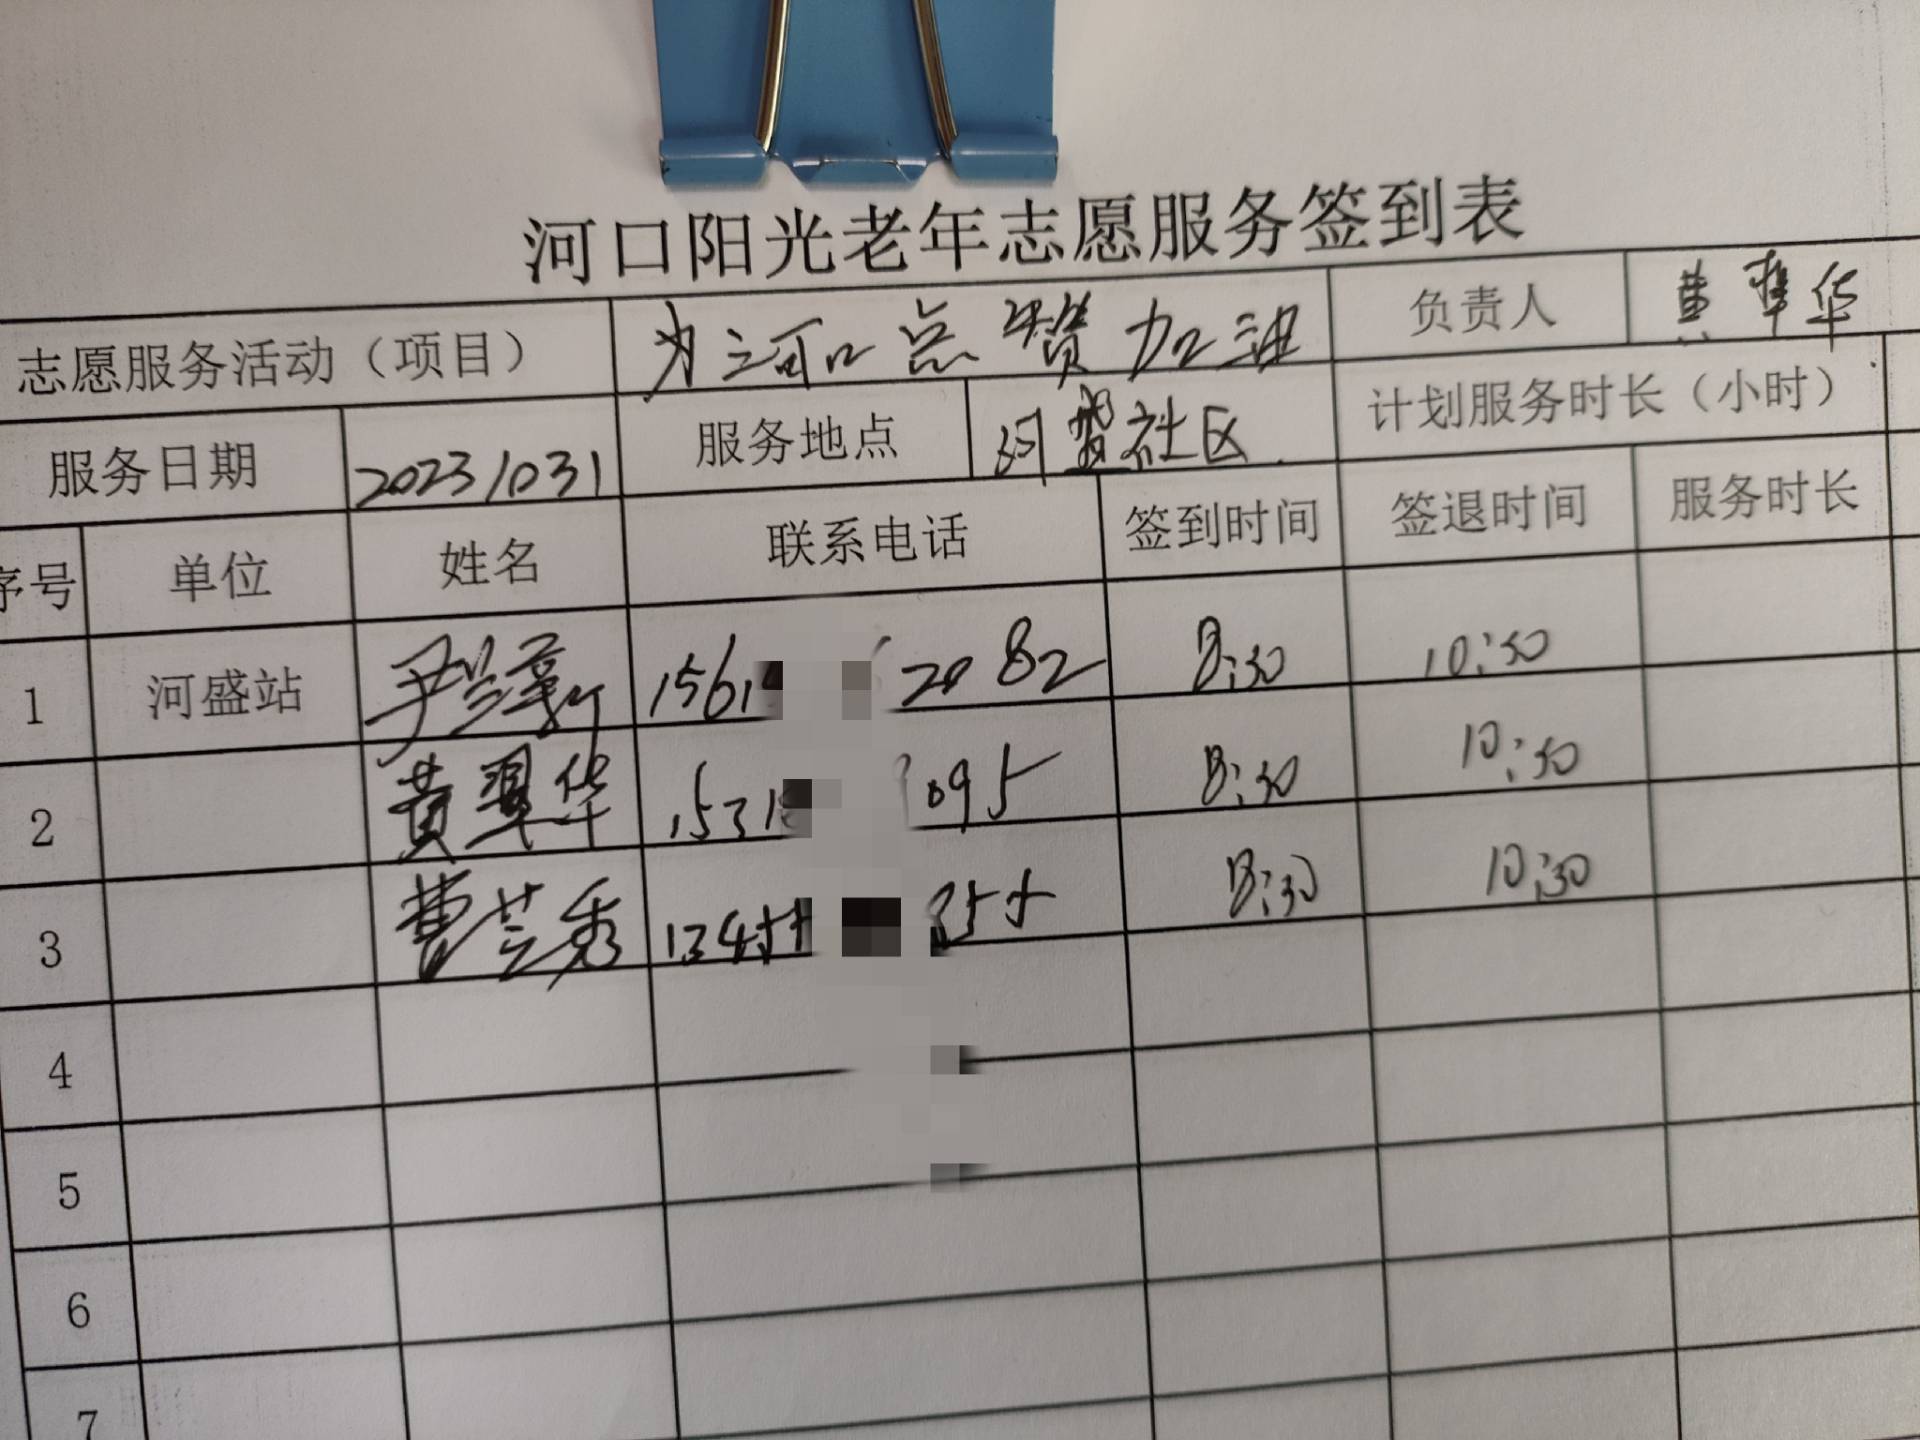 河口阳光老年志愿服务签到表
志愿服务活动（项目） 为河口点赞加油 负责人 黄翠华
服务日期 20231031 服务地点 河盛社区 计划服务时长（小时）
序号 单位 姓名 联系电话 签到时间 签退时间 服务时长
1 河盛站 尹兰 2082 8:30 10:30
2 黄翠华 8:30 10:30
3 曹芸秀 8:30 10:30
4
5
6
7